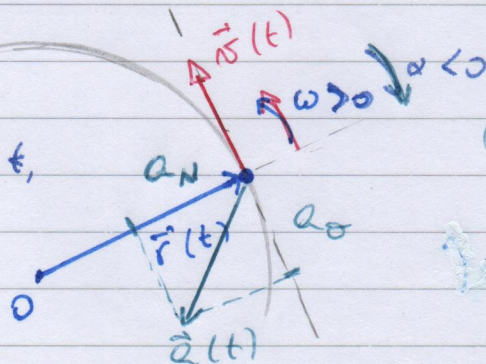 v⃗(t)
α < 0
ω > 0
t,
a_N
a_σ
r⃗(t)
O
a⃗(t)